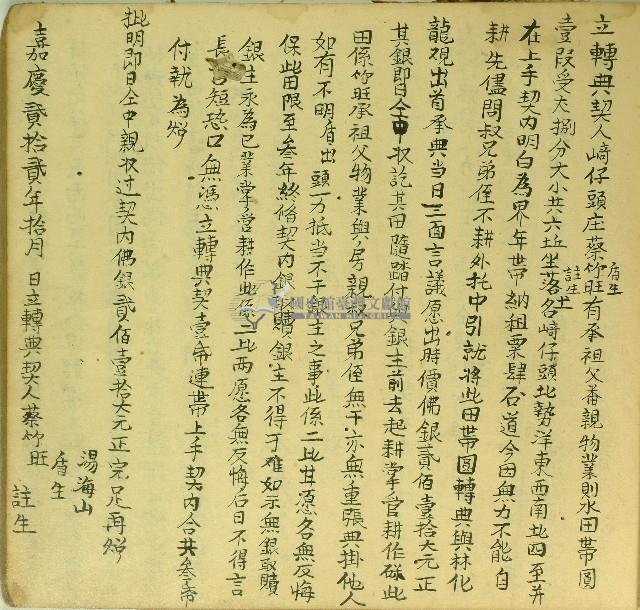 立轉典契人崎仔頭庄蔡竹旺有承祖父番親物業則水田帶圓
盾生
註生
壹段受大捌分大小共六坵土坐落名崎仔頭北勢洋東西南北四至并
在上手契內明白為界年帶納租粟肆石道今因無力不能自
耕先儘問叔兄弟侄不耕外托中引就將此田帶圓轉典與林化
龍觀出首承典當日三面言議愿出時價佛銀貳佰壹拾大元正
其銀即日仝中收訖其田隨踏付與銀主前去起耕掌管耕作碌此
田係竹旺承祖父物業與房親叔兄弟侄無干亦無重張典掛他人
如有不明盾出頭一力抵当不干銀主之事此係二比甘愿各無反悔
保此田限至叁年終俻契內銀取贖銀主不得刁难如示無銀取贖
銀主永為己業掌管耕作此係二比兩愿各無反悔后日不得言
長言短恐口無憑立轉典契壹帋連帶上手契內合共叁帋
付執為炤
批明即日仝中親收过契內佛銀貳佰壹拾大元正完足再炤
嘉慶貳拾貳年拾月 日立轉典契人蔡竹旺
湯海山
盾生
註生
國史館臺灣文獻館
TAIWAN HISTORICA